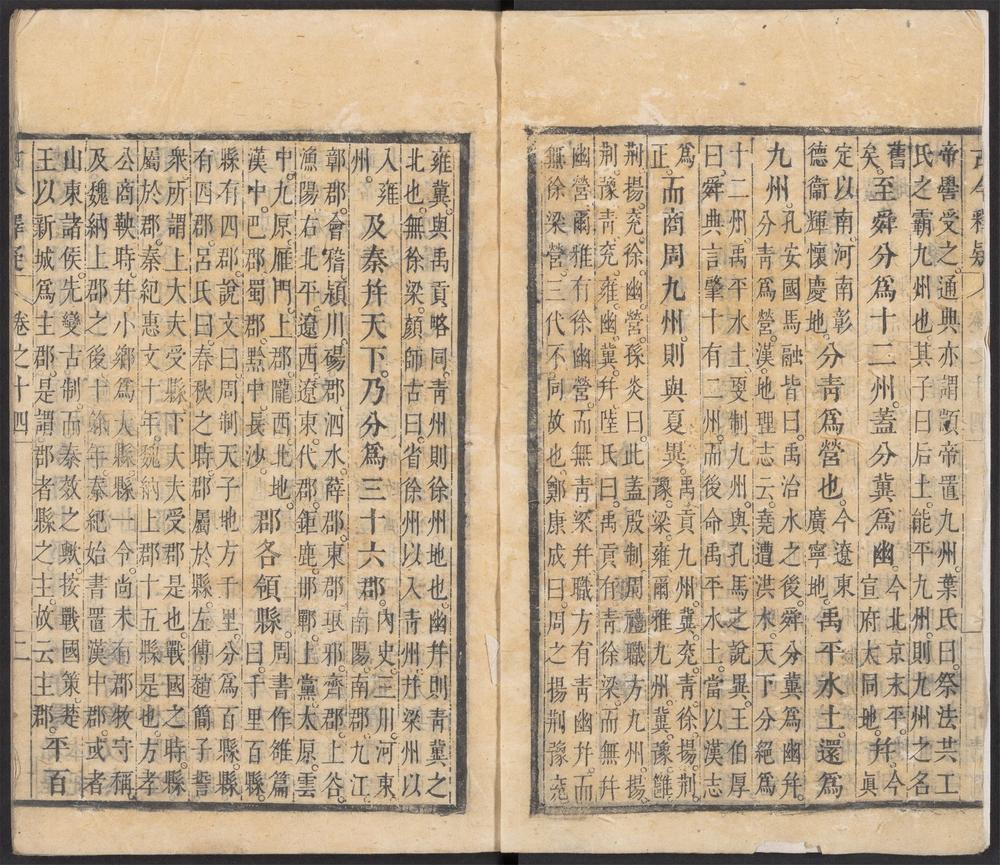 帝嚳受之。通典亦謂顓帝置九州。葉氏曰。祭法共工
氏之霸九州也。其子曰后土。能平九州。則九州之名
舊
矣。
至舜分爲十二州。蓋分冀爲幽。
今北京末平。
宣府大同地。
并。
今
眞
定以南。河南彰
德衞輝懷慶地。
分靑爲營也。
今遼東
廣寧地。
禹平水土。還爲
九州。
孔安國馬融皆曰。禹治水之後。舜分冀爲幽并。
分靑爲營。漢地理志云。堯遭洪水。天下分絕爲
十二州。禹平水土。更制九州。與孔馬之說異。王伯厚
曰。舜典言肇十有二州。而後命禹平水土。當以漢志
爲
正。
而商周九州。則與夏異。
禹貢九州。冀兗靑徐揚荆
豫梁雍。爾雅九州。冀豫雝
荆揚兗徐幽營。孫炎曰。此蓋殷制。周禮職方九州。揚
荆豫靑兗雍幽冀并。陸氏曰。禹貢有靑徐梁。而無并
幽營。爾雅有徐幽營。而無靑梁并。職方有靑幽并。而
無徐梁營。三代不同故也。鄭康成曰。周之揚荆豫兗
雍冀。與禹貢略同。靑州則徐州地也。幽并則靑冀之
北也。無徐梁。顔師古曰。省徐州以入靑州。并梁州以
入雍
州。
及秦并天下。乃分爲三十六郡。
內史。三川。河東
南陽。南郡。九江
鄣郡。會稽。潁川。碭郡。泗水。薛郡。東郡。琅邪。齊郡。上谷
漁陽。右北平。遼西。遼東。代郡。鉅鹿。邯鄲。上黨。太原。雲
中。九原。雁門。上郡。隴西。北地。
漢中。巴郡。蜀郡。黔中。長沙。
郡各領縣。
周書作雒篇
曰。千里百縣。
縣有四郡。說文曰。周制天子地方千里。分爲百縣。縣
有四郡。呂氏曰。春秋之時。郡屬於縣。左傳趙簡子誓
衆。所謂上大夫受縣。下大夫受郡是也。戰國之時。縣
屬於郡。秦紀惠文十年。魏納上郡十五縣是也。方孝
公商鞅時。并小鄉爲大縣。縣一令。尚未有郡牧守稱。
及魏納上郡之後。十餘年。秦紀始書置漢中郡。或者
山東諸侯先變古制。而秦效之歟。按戰國策。楚
王以新城爲主郡。是謂郡者縣之主。故云主郡。
平百
卷之十四